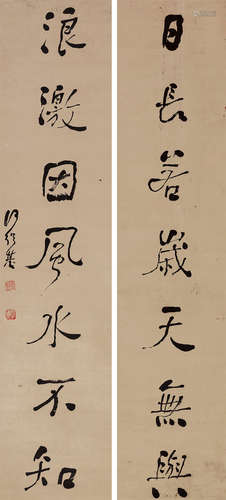 日長若歲天無興
浪激因風水不知
何紹基